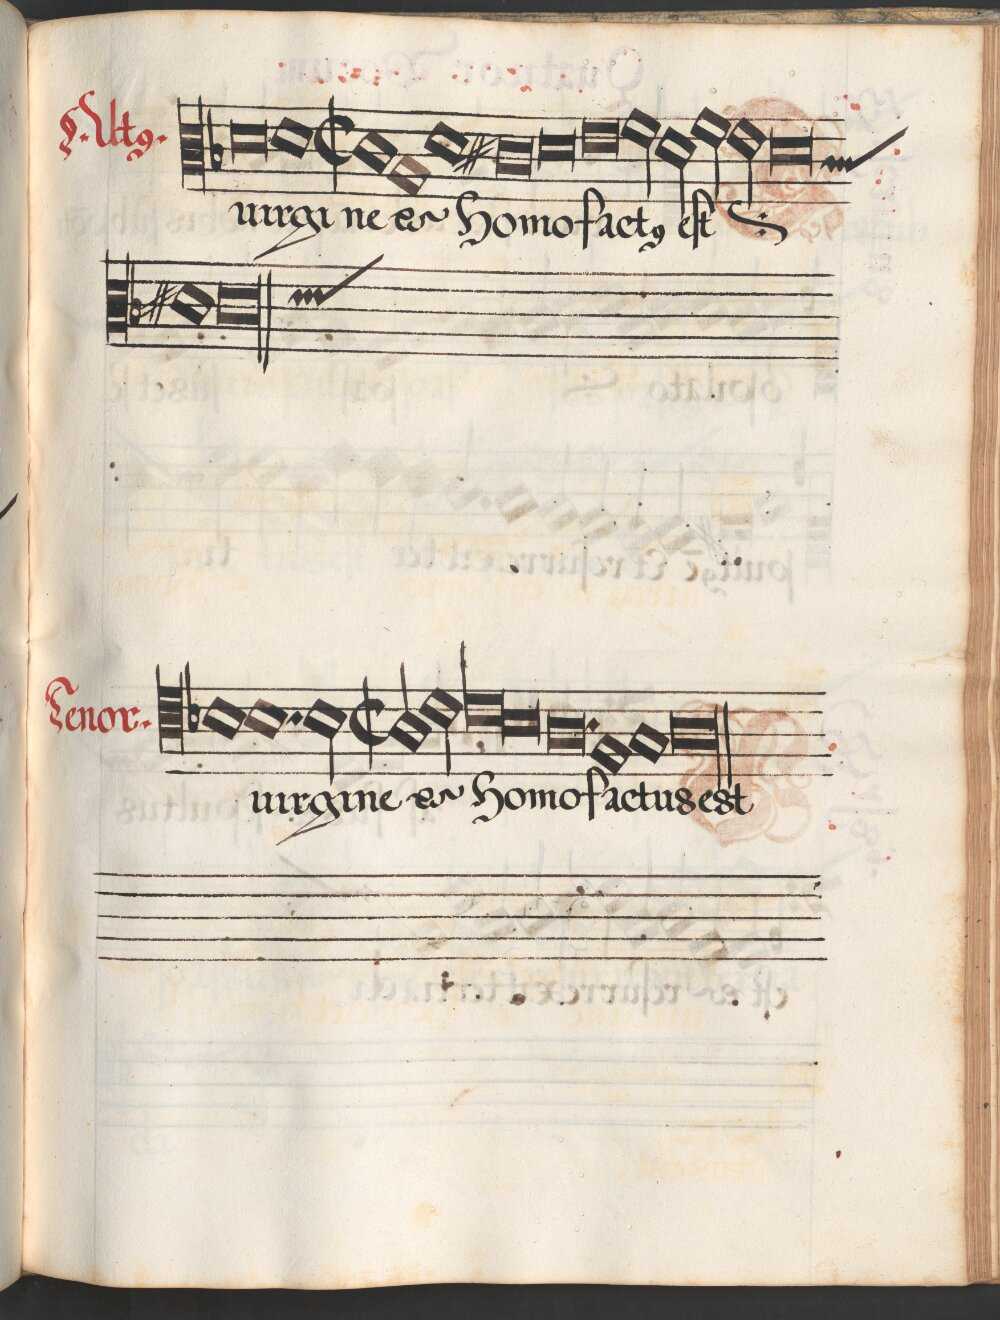 Altꝯ.
uirgine & Homo factꝯ est
Tenor.
uirgine & Homo factus est